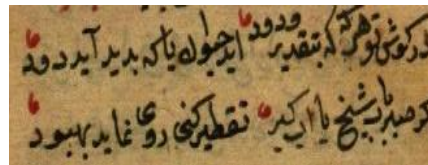 در کوش تو هرکه که بتقدیر ودود اید حیوان یا که بدید آید دود
کر صبر بآب شیخ یا اب کبر تقطیر کنی روی نماید بهبود